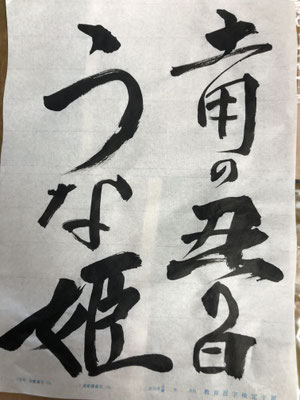 土用の丑の日
うな姫